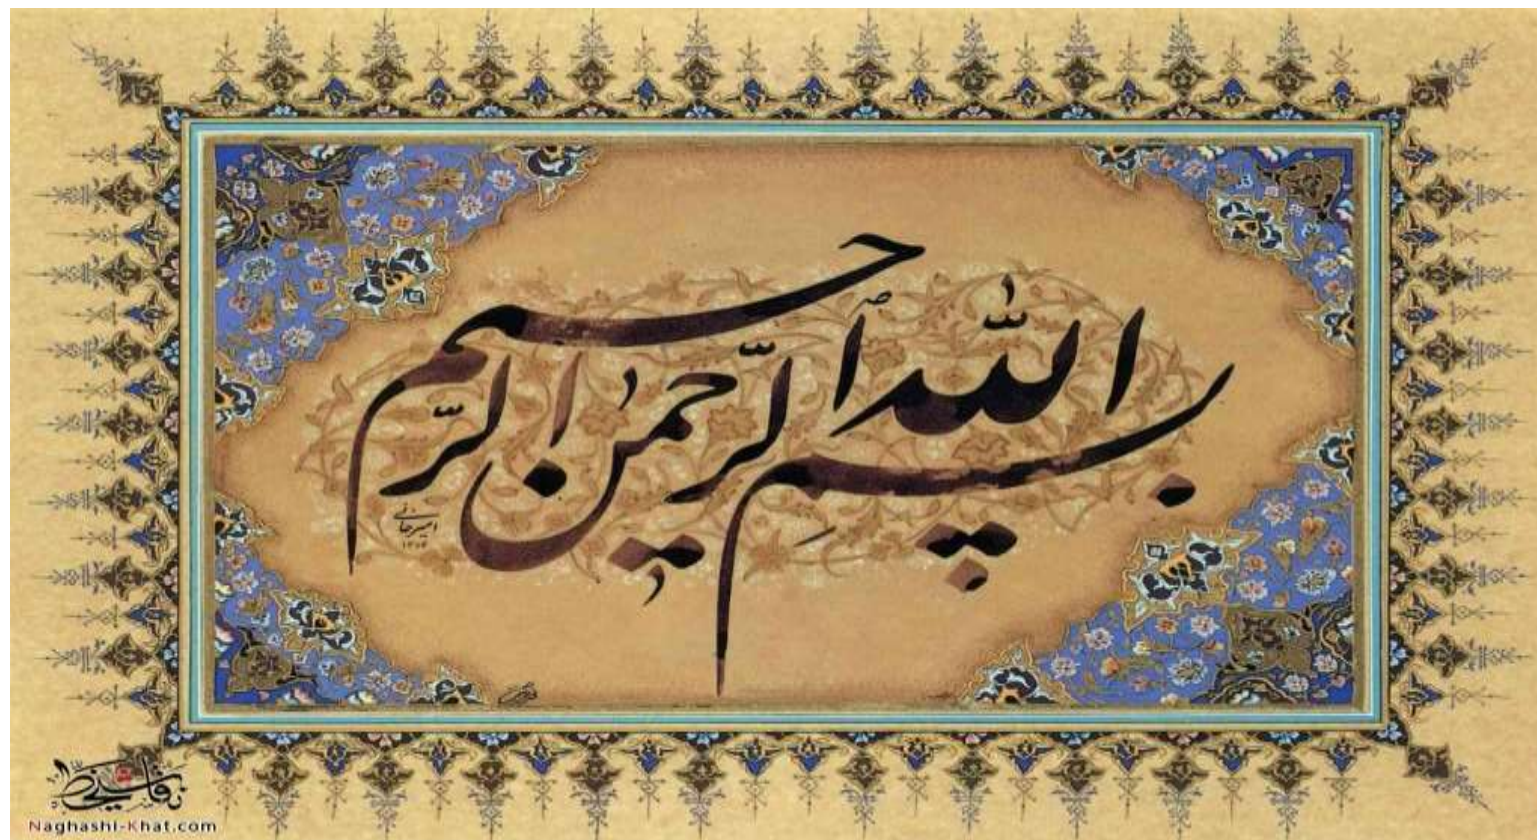 بسم الله الرحمن الرحیم
امیرخانی
نقاشیخط
Naghashi-Khat.com